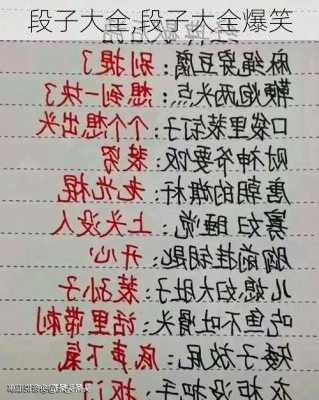 段子大全,段子大全爆笑
麻绳穿豆腐：别提了
鞭炮两头点：想到一块了
口袋里装钉子：个个想出头
财神爷要饭：装穷
唐朝的旗杆：老光棍
寡妇睡觉：上头没人
胸前挂钥匙：开心
儿媳妇大肚子：装孙子
吃鱼不吐骨头：话里带刺
矮子放屁：底声下氣
衣柜没把手：抠门